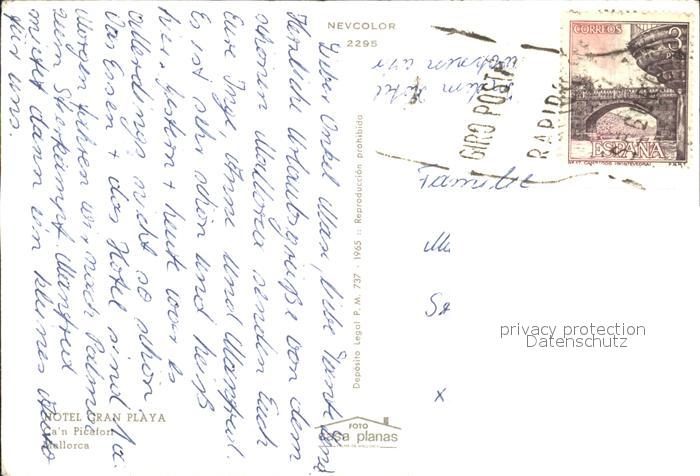 NEVCOLOR
2295
In dem Hotel
wohnen wir
Lieber Onkel Max, liebe Tante
Herzliche Urlaubsgrüße von dem
schönen Mallorca senden Euch
Eure Inge, Anne und Manfred.
Es ist sehr schön und heiß
hier. Gestern + heute war es
allerdings nicht so schön
Das Essen + das Hotel sind
Morgen fahren wir nach Palma
zum Stierkampf. Manfred
mietet dann ein kleines Auto
für uns.
Depósito Legal P.M. 737 - 1965 :: Reproducción prohibida
HOTEL GRAN PLAYA
Ca'n Picafort
Mallorca
FOTO
casa planas
CORREOS
3
PTA
ESPAÑA
GIRO POSTAL
RAPIDO
Familie
x
privacy protection
Datenschutz